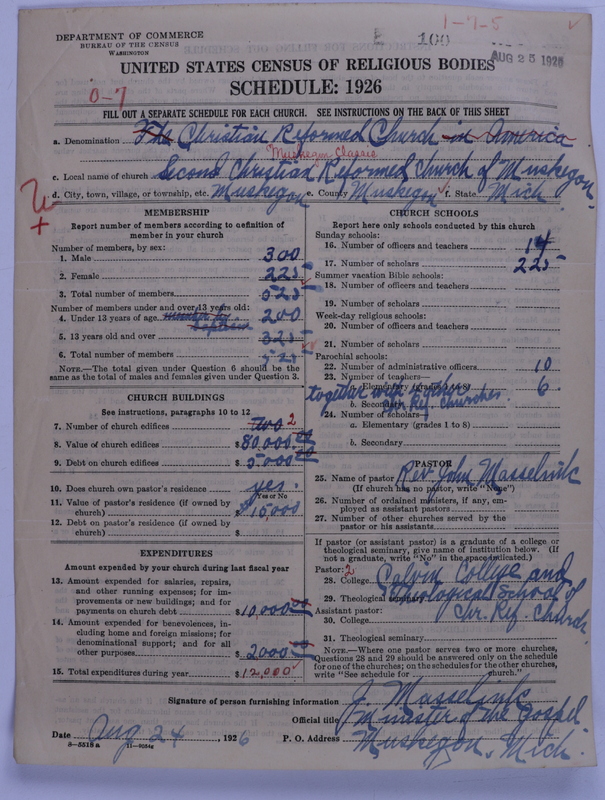 1-7-5
DEPARTMENT OF COMMERCE
BUREAU OF THE CENSUS
WASHINGTON
100
AUG 25 1926
UNITED STATES CENSUS OF RELIGIOUS BODIES
SCHEDULE: 1926
0-7
FILL OUT A SEPARATE SCHEDULE FOR EACH CHURCH. SEE INSTRUCTIONS ON THE BACK OF THIS SHEET
a. Denomination The Christian Reformed Church in America
Muskegon Classis
c. Local name of church Second Christian Reformed Church of Muskegon.
d. City, town, village, or township, etc. Muskegon e. County Muskegon f. State Mich.
MEMBERSHIP
Report number of members according to definition of member in your church
Number of members, by sex:
1. Male 300
2. Female 225
3. Total number of members 525
Number of members under and over 13 years old:
4. Under 13 years of age member by baptism 200
5. 13 years old and over 325
6. Total number of members 525
NOTE.—The total given under Question 6 should be the same as the total of males and females given under Question 3.
CHURCH BUILDINGS
See instructions, paragraphs 10 to 12
7. Number of church edifices two 2
8. Value of church edifices $ 80,000 00
9. Debt on church edifices $ 5000 00
10. Does church own pastor's residence yes.
Yes or No
11. Value of pastor's residence (if owned by church) $ 10,000
12. Debt on pastor's residence (if owned by church) $
EXPENDITURES
Amount expended by your church during last fiscal year
13. Amount expended for salaries, repairs, and other running expenses; for improvements or new buildings; and for payments on church debt $10,000 00
14. Amount expended for benevolences, including home and foreign missions; for denominational support; and for all other purposes $ 2000 00
15. Total expenditures during year $ 12,000
CHURCH SCHOOLS
Report here only schools conducted by this church
Sunday schools:
16. Number of officers and teachers 14
17. Number of scholars 225
Summer vacation Bible schools:
18. Number of officers and teachers
19. Number of scholars
Week-day religious schools:
20. Number of officers and teachers
21. Number of scholars
Parochial schools:
22. Number of administrative officers 10
23. Number of teachers—
a. Elementary (grades 1 to 8) 6
together with other Chr. Ref. Churches.
b. Secondary
24. Number of scholars—
a. Elementary (grades 1 to 8)
b. Secondary
PASTOR
25. Name of pastor Rev. John Masselink
(If church has no pastor, write "None")
26. Number of ordained ministers, if any, employed as assistant pastors
27. Number of other churches served by the pastor or his assistants
If pastor (or assistant pastor) is a graduate of a college or theological seminary, give name of institution below. (If not a graduate, write "No" in the space indicated.)
Pastor: 2
28. College Calvin College and
29. Theological seminary Theological School of
Assistant pastor: Chr. Ref. Church
30. College
31. Theological seminary
NOTE.—Where one pastor serves two or more churches, Questions 28 and 29 should be answered only on the schedule for one of the churches; on the schedules for the other churches, write "See schedule for church."
Signature of person furnishing information J. Masselink
Official title Minister of the Gospel
Date Aug 24, 1926 P. O. Address Muskegon, Mich.
8—5518 a